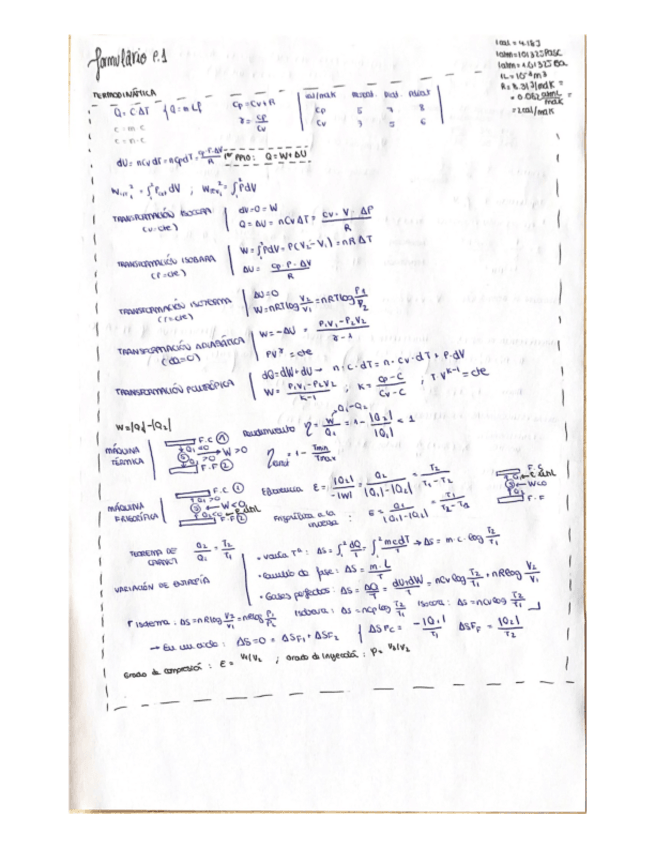 formulario P.1
1cal = 4.18J
1atm = 101325 Pasc
1atm = 1.01325 Ba
1L = 10⁻³ m3
R = 8.31 J/mol K =
= 0.082 atm L / mol K =
= 2 cal/mol K
TERMODINÁMICA
Q = C ΔT { Q = m Lf
c = m·c
c = n·c
Cp = Cv + R
γ = Cp/Cv
cal/molK
Cp 5 7 8
Cv 3 5 6
dU = nCv dT
1er PPIO: Q = W + ΔU
; W = ∫ PdV
TRANSFORMACIÓN ISOCORA (V=cte)
dV=0=W
Q = ΔU = nCvΔT = Cv · V · ΔP / R
TRANSFORMACIÓN ISOBARA (P=cte)
W = ∫PdV = P(V₂-V₁) = nRΔT
ΔU = Cp · P · ΔV / R
TRANSFORMACIÓN ISOTERMA (T=cte)
ΔU=0
W = nRT log V₂/V₁ = nRT log P1/P2
TRANSFORMACIÓN ADIABÁTICA (dQ=0)
W = -ΔU = P₁V₁-P₂V₂ / γ-1
PVγ = cte
TRANSFORMACIÓN POLITRÓPICA
dQ = dW + dU → n·c·dT = n·Cv·dT + P·dV
W = P₁V₁-P₂V₂ / K-1 ; K = Cp-C / Cv-C ; T V^K-1 = cte
W = |Q₁|-|Q₂|
MÁQUINA TÉRMICA
F.C ①
W>0
F.F ②
Rendimiento η = W/Q₁ = 1 - |Q₂|/|Q₁| < 1
Q₁-Q₂
= 1 - Tmin/Tmax
MÁQUINA FRIGORÍFICA
F.C ①
W<0
F.F ②
Eficiencia ε = |Q₂|/-|W| = Q₂/|Q₁|-|Q₂| = T₂/T₁-T₂
F.C
W<0
F.F
TEOREMA DE CARNOT
Q₂/Q₁ = T₂/T₁
VARIACIÓN DE ENTROPÍA
• varía Tª: ΔS = ∫ dQ/T = ∫ mcdT/T → ΔS = m·c·log T₂/T₁
• cambio de fase: ΔS = m·L/T
• Gases perfectos: ΔS = ΔQ/T = dU+dW/T = nCv log T₂/T₁ + nR log V₂/V₁
Isoterma: ΔS = nR log V₂/V₁ = nR log P₁/P₂ Isobara: ΔS = nCp log T₂/T₁ Isocora: ΔS = nCv log T₂/T₁
→ En un ciclo: ΔS = 0 = ΔSF₁ + ΔSF₂ { ΔSFc = -|Q₁|/T₁ ΔSFF = |Q₂|/T₂
Grado de compresión: ε = V₁/V₂ ; Grado de inyección: ρ = V₃/V₂